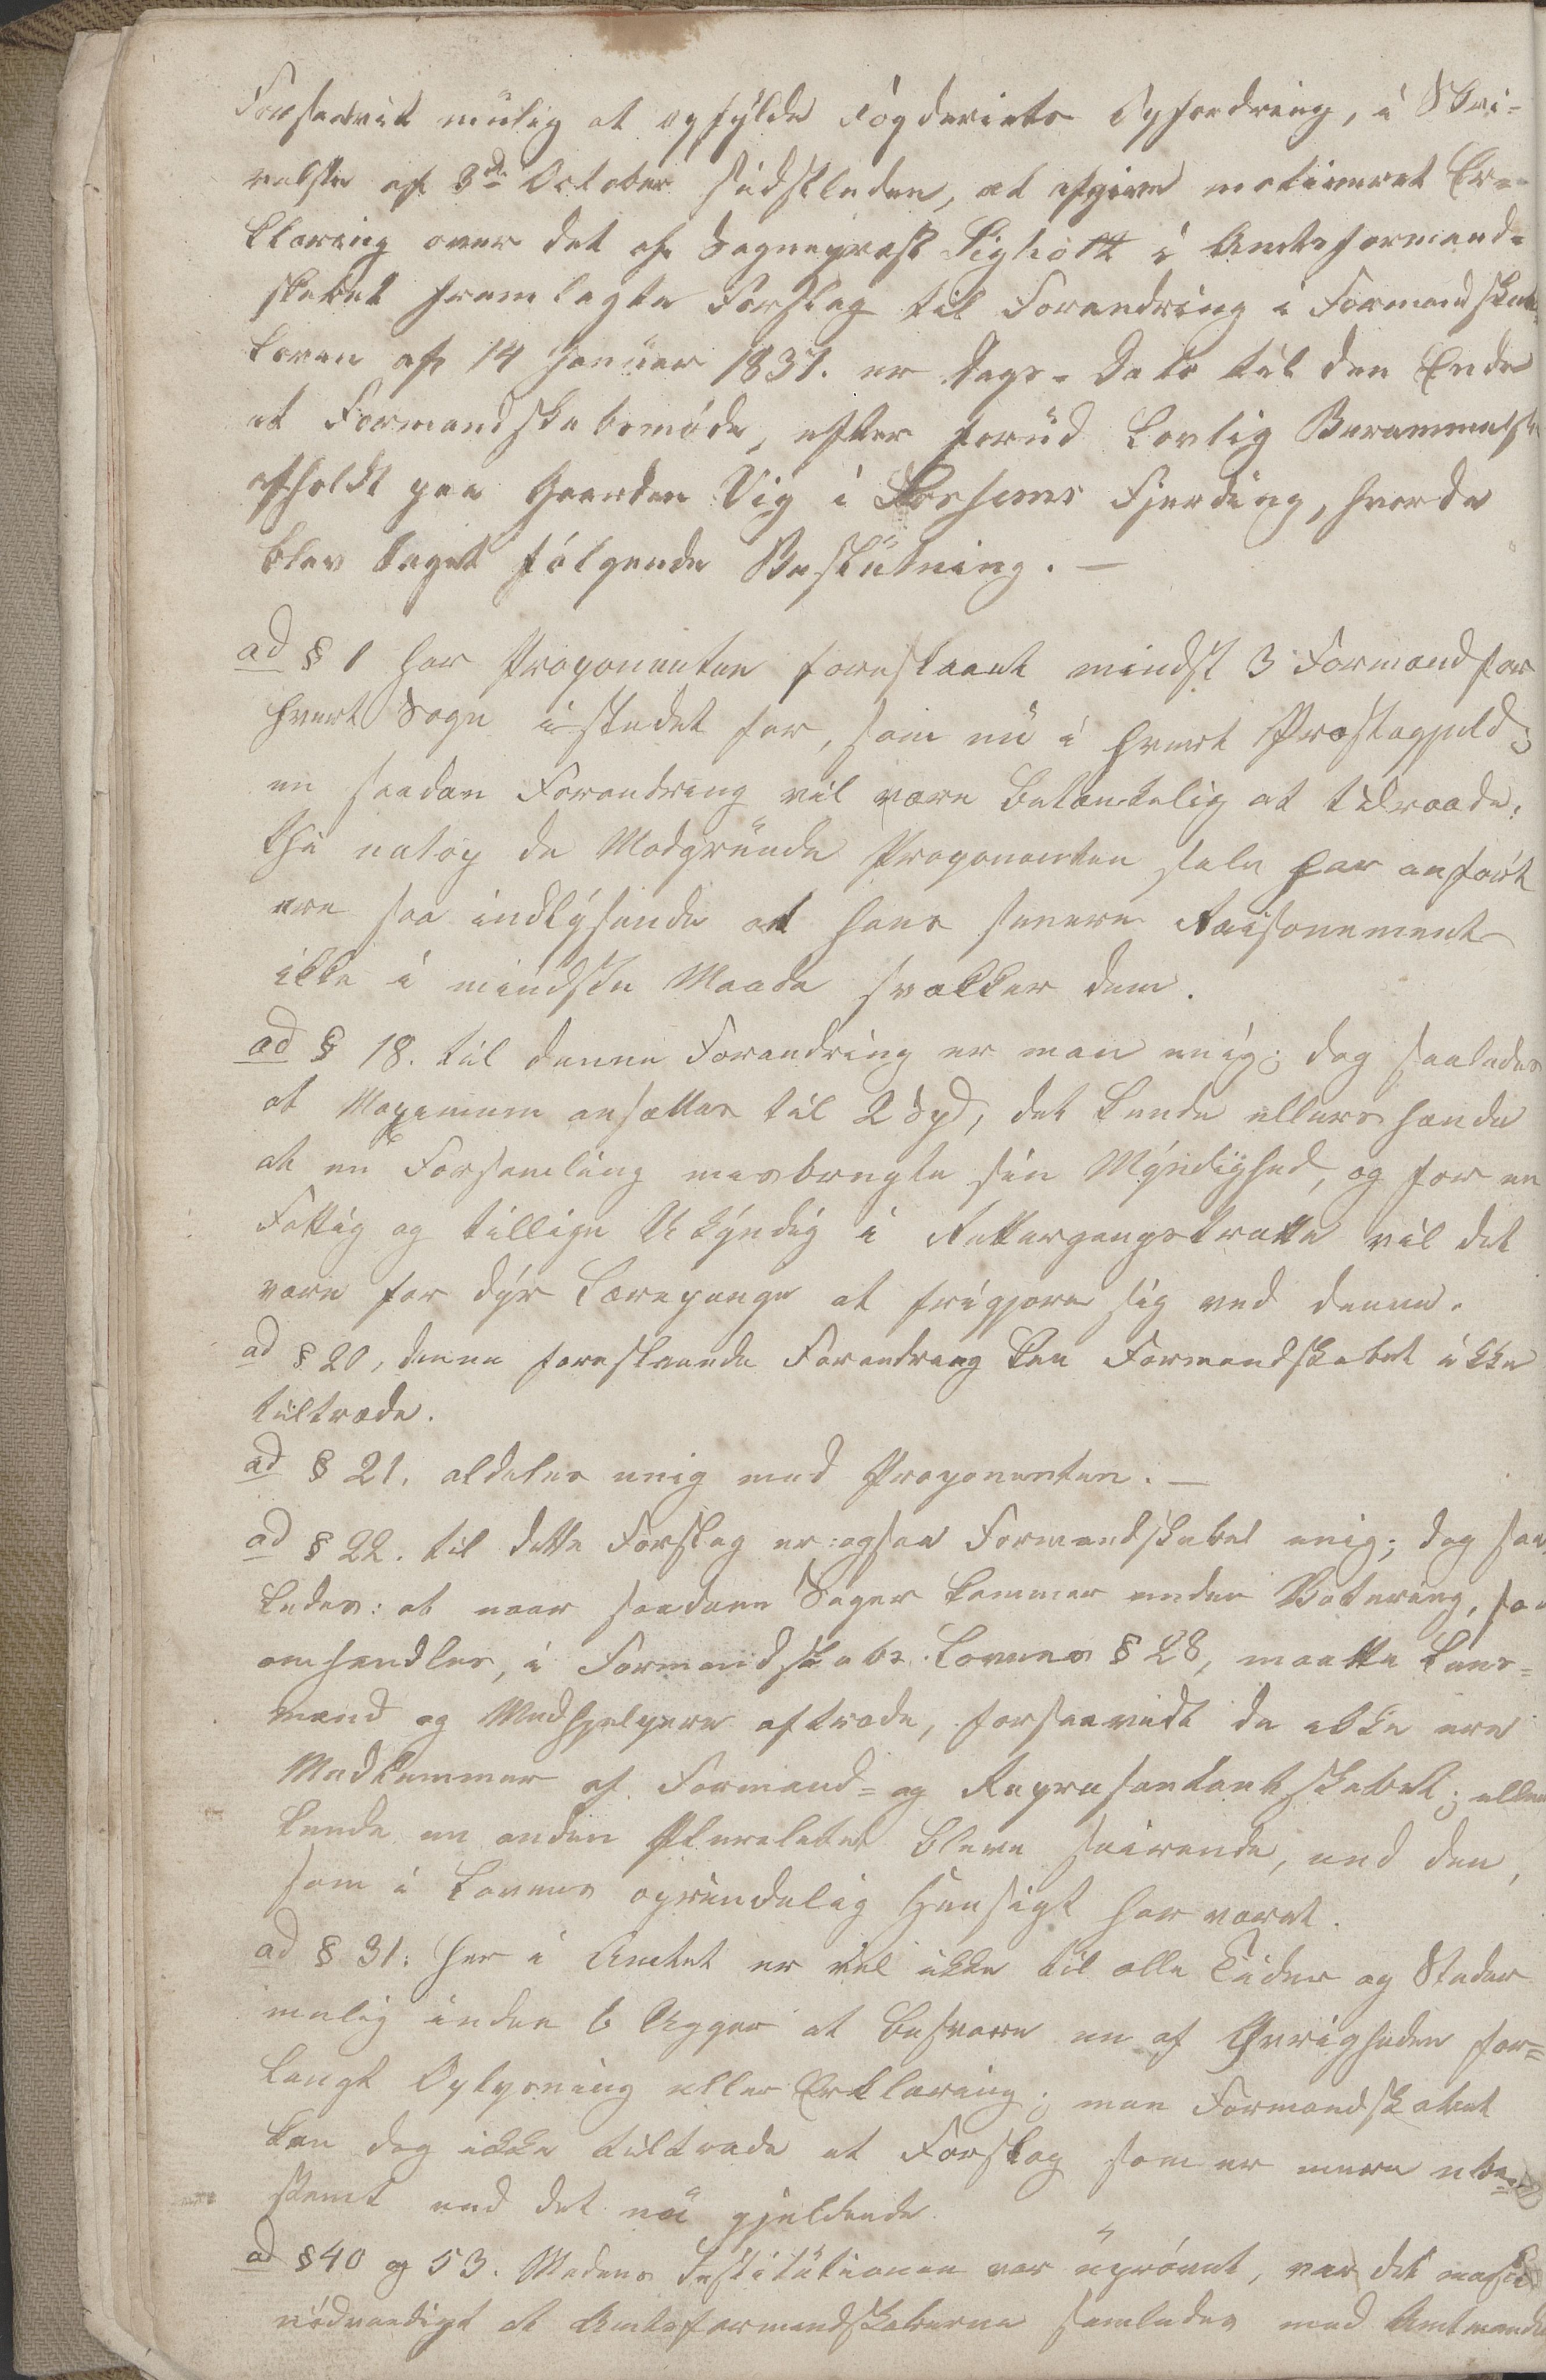 Forsaavit mulig at opfylde Fogderiets Opfordring, i Skri-
velse af 3die October sidstleden, at afgive motiveret Er-
klæring over det af Sognepræst Sigholt i Amtsformand-
skabet fremlagte Forslag til Forandring i Formandskabs-
Loven af 14 Januar 1837. er Dags-Dato til den Ende
et Formandskabsmøde, efter forud lovlig Berammelse
afholdt paa Gaarden Vig i Fjerding, hvorda
blev taget følgende Beslutning. —
ad § 1 har Proponenten foreslaaet mindst 3 Formænd for
hvert Sogn istedet for, som nu i hvert Præstegjeld;
en saadan Forandring vil være betænkelig at tilraade;
thi netop de Modgrunde Proponenten selv har anført
ere saa indlysende at hans senere Raisonement
ikke i mindste Maade svækker dem.
ad § 18. til denne Forandring er man enig; dog saaledes
at Maximum ansættes til 2 Spd, det kunde ellers hænde
at en Forsamling misbrugte sin Myndighed, og for en
Fattig og tillige Ukyndig i Rettergangstrætte vil det
være for dyr Lærepenge at frigjøre sig ved denne.
ad § 20, denne foreslaaede Forandring kan Formandskabet ikke
tiltræde.
ad § 21. aldeles enig med Proponenten. —
ad § 22. til dette Forslag er ogsaa Formandskabet enig; dog saa
ledes: at naar saadane Sager kommer under Votering, som
omhandles, i Formandskabs-Lovens § 28, maatte Læns-
mænd og Medhjelpere aftræde, forsaavidt de ikke ere
Medlemmer af Formand- og Repræsentantskabet; ellers
kunde en anden Pluralitet blive seirende, end den,
som i Lovens oprindelig Hensigt har været.
ad § 31: her i Amtet er vel ikke til alle Tider og Steder
mulig inden 6 Uger at besvare en af Øvrigheden for-
langt Oplysning eller Erklæring; men Formandskabet
kan dog ikke tiltræde et Forslag som er mere ube-
stemt end det nu gjeldende.
ad § 40 og 53. Medens Institutionen var uprøvet, var det maaskee
nødvendigt at Amtsformandskaberne samledes med Amtmanden